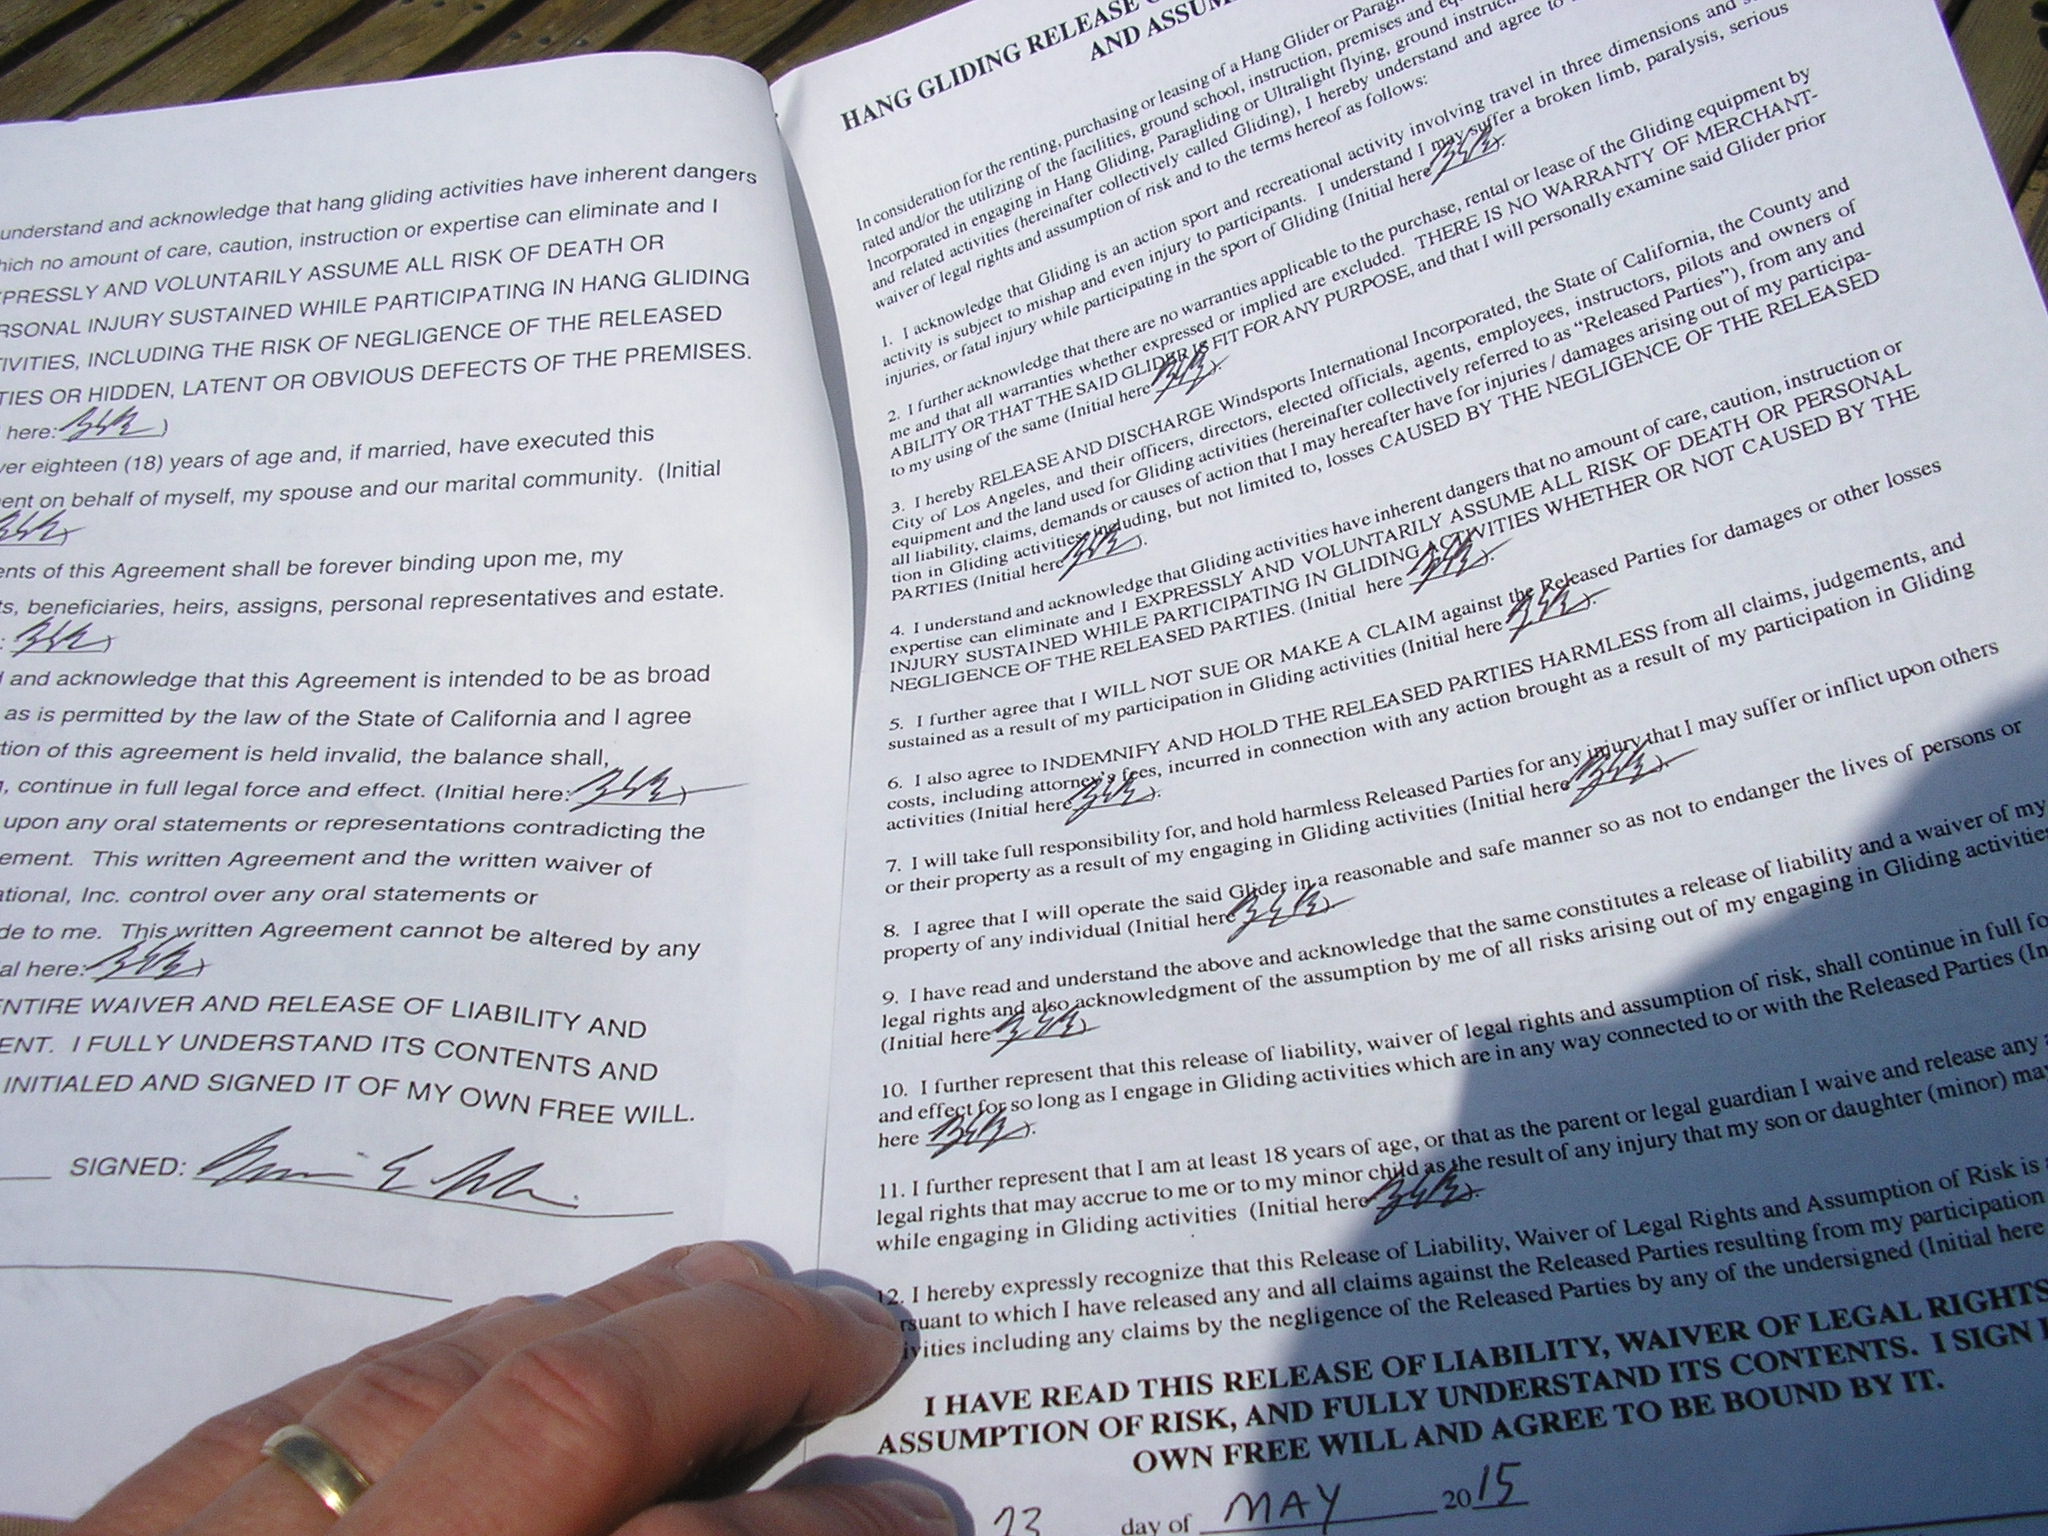 understand and acknowledge that hang gliding activities have inherent dangers
hich no amount of care, caution, instruction or expertise can eliminate and I
PRESSLY AND VOLUNTARILY ASSUME ALL RISK OF DEATH OR
RSONAL INJURY SUSTAINED WHILE PARTICIPATING IN HANG GLIDING
TIVITIES, INCLUDING THE RISK OF NEGLIGENCE OF THE RELEASED
TIES OR HIDDEN, LATENT OR OBVIOUS DEFECTS OF THE PREMISES.
here: )
ver eighteen (18) years of age and, if married, have executed this
ent on behalf of myself, my spouse and our marital community. (Initial
ents of this Agreement shall be forever binding upon me, my
ts, beneficiaries, heirs, assigns, personal representatives and estate.
: )
d and acknowledge that this Agreement is intended to be as broad
as is permitted by the law of the State of California and I agree
tion of this agreement is held invalid, the balance shall,
, continue in full legal force and effect. (Initial here: )
upon any oral statements or representations contradicting the
ement. This written Agreement and the written waiver of
ational, Inc. control over any oral statements or
de to me. This written Agreement cannot be altered by any
al here: )
ENTIRE WAIVER AND RELEASE OF LIABILITY AND
ENT. I FULLY UNDERSTAND ITS CONTENTS AND
INITIALED AND SIGNED IT OF MY OWN FREE WILL.
SIGNED:
HANG GLIDING RELEASE
AND ASSUM
In consideration for the renting, purchasing or leasing of a Hang Glider or Parag
rated and/or the utilizing of the facilities, ground school, instruction, premises and eq
Incorporated in engaging in Hang Gliding, Paragliding or Ultralight flying, ground instruct
and related activities (hereinafter collectively called Gliding), I hereby understand and agree to
waiver of legal rights and assumption of risk and to the terms hereof as follows:
1. I acknowledge that Gliding is an action sport and recreational activity involving travel in three dimensions and
activity is subject to mishap and even injury to participants. I understand I may suffer a broken limb, paralysis, serious
injuries, or fatal injury while participating in the sport of Gliding (Initial here ).
2. I further acknowledge that there are no warranties applicable to the purchase, rental or lease of the Gliding equipment by
me and that all warranties whether expressed or implied are excluded. THERE IS NO WARRANTY OF MERCHANT-
ABILITY OR THAT THE SAID GLIDER IS FIT FOR ANY PURPOSE, and that I will personally examine said Glider prior
to my using of the same (Initial here ).
3. I hereby RELEASE AND DISCHARGE Windsports International Incorporated, the State of California, the County and
City of Los Angeles, and their officers, directors, elected officials, agents, employees, instructors, pilots and owners of
equipment and the land used for Gliding activities (hereinafter collectively referred to as "Released Parties"), from any and
all liability, claims, demands or causes of action that I may hereafter have for injuries / damages arising out of my participa-
tion in Gliding activities including, but not limited to, losses CAUSED BY THE NEGLIGENCE OF THE RELEASED
PARTIES (Initial here ).
4. I understand and acknowledge that Gliding activities have inherent dangers that no amount of care, caution, instruction or
expertise can eliminate and I EXPRESSLY AND VOLUNTARILY ASSUME ALL RISK OF DEATH OR PERSONAL
INJURY SUSTAINED WHILE PARTICIPATING IN GLIDING ACTIVITIES WHETHER OR NOT CAUSED BY THE
NEGLIGENCE OF THE RELEASED PARTIES. (Initial here ).
5. I further agree that I WILL NOT SUE OR MAKE A CLAIM against the Released Parties for damages or other losses
sustained as a result of my participation in Gliding activities (Initial here ).
6. I also agree to INDEMNIFY AND HOLD THE RELEASED PARTIES HARMLESS from all claims, judgements, and
costs, including attorney's fees, incurred in connection with any action brought as a result of my participation in Gliding
activities (Initial here ).
7. I will take full responsibility for, and hold harmless Released Parties for any injury that I may suffer or inflict upon others
or their property as a result of my engaging in Gliding activities (Initial here ).
8. I agree that I will operate the said Glider in a reasonable and safe manner so as not to endanger the lives of persons or
property of any individual (Initial here ).
9. I have read and understand the above and acknowledge that the same constitutes a release of liability and a waiver of my
legal rights and also acknowledgment of the assumption by me of all risks arising out of my engaging in Gliding activities
(Initial here ).
10. I further represent that this release of liability, waiver of legal rights and assumption of risk, shall continue in full fo
and effect for so long as I engage in Gliding activities which are in any way connected to or with the Released Parties (In
here ).
11. I further represent that I am at least 18 years of age, or that as the parent or legal guardian I waive and release any
legal rights that may accrue to me or to my minor child as the result of any injury that my son or daughter (minor) may
while engaging in Gliding activities (Initial here ).
12. I hereby expressly recognize that this Release of Liability, Waiver of Legal Rights and Assumption of Risk is
rsuant to which I have released any and all claims against the Released Parties resulting from my participation
ivities including any claims by the negligence of the Released Parties by any of the undersigned (Initial here
I HAVE READ THIS RELEASE OF LIABILITY, WAIVER OF LEGAL RIGHTS
ASSUMPTION OF RISK, AND FULLY UNDERSTAND ITS CONTENTS. I SIGN
OWN FREE WILL AND AGREE TO BE BOUND BY IT.
23 day of MAY 2015